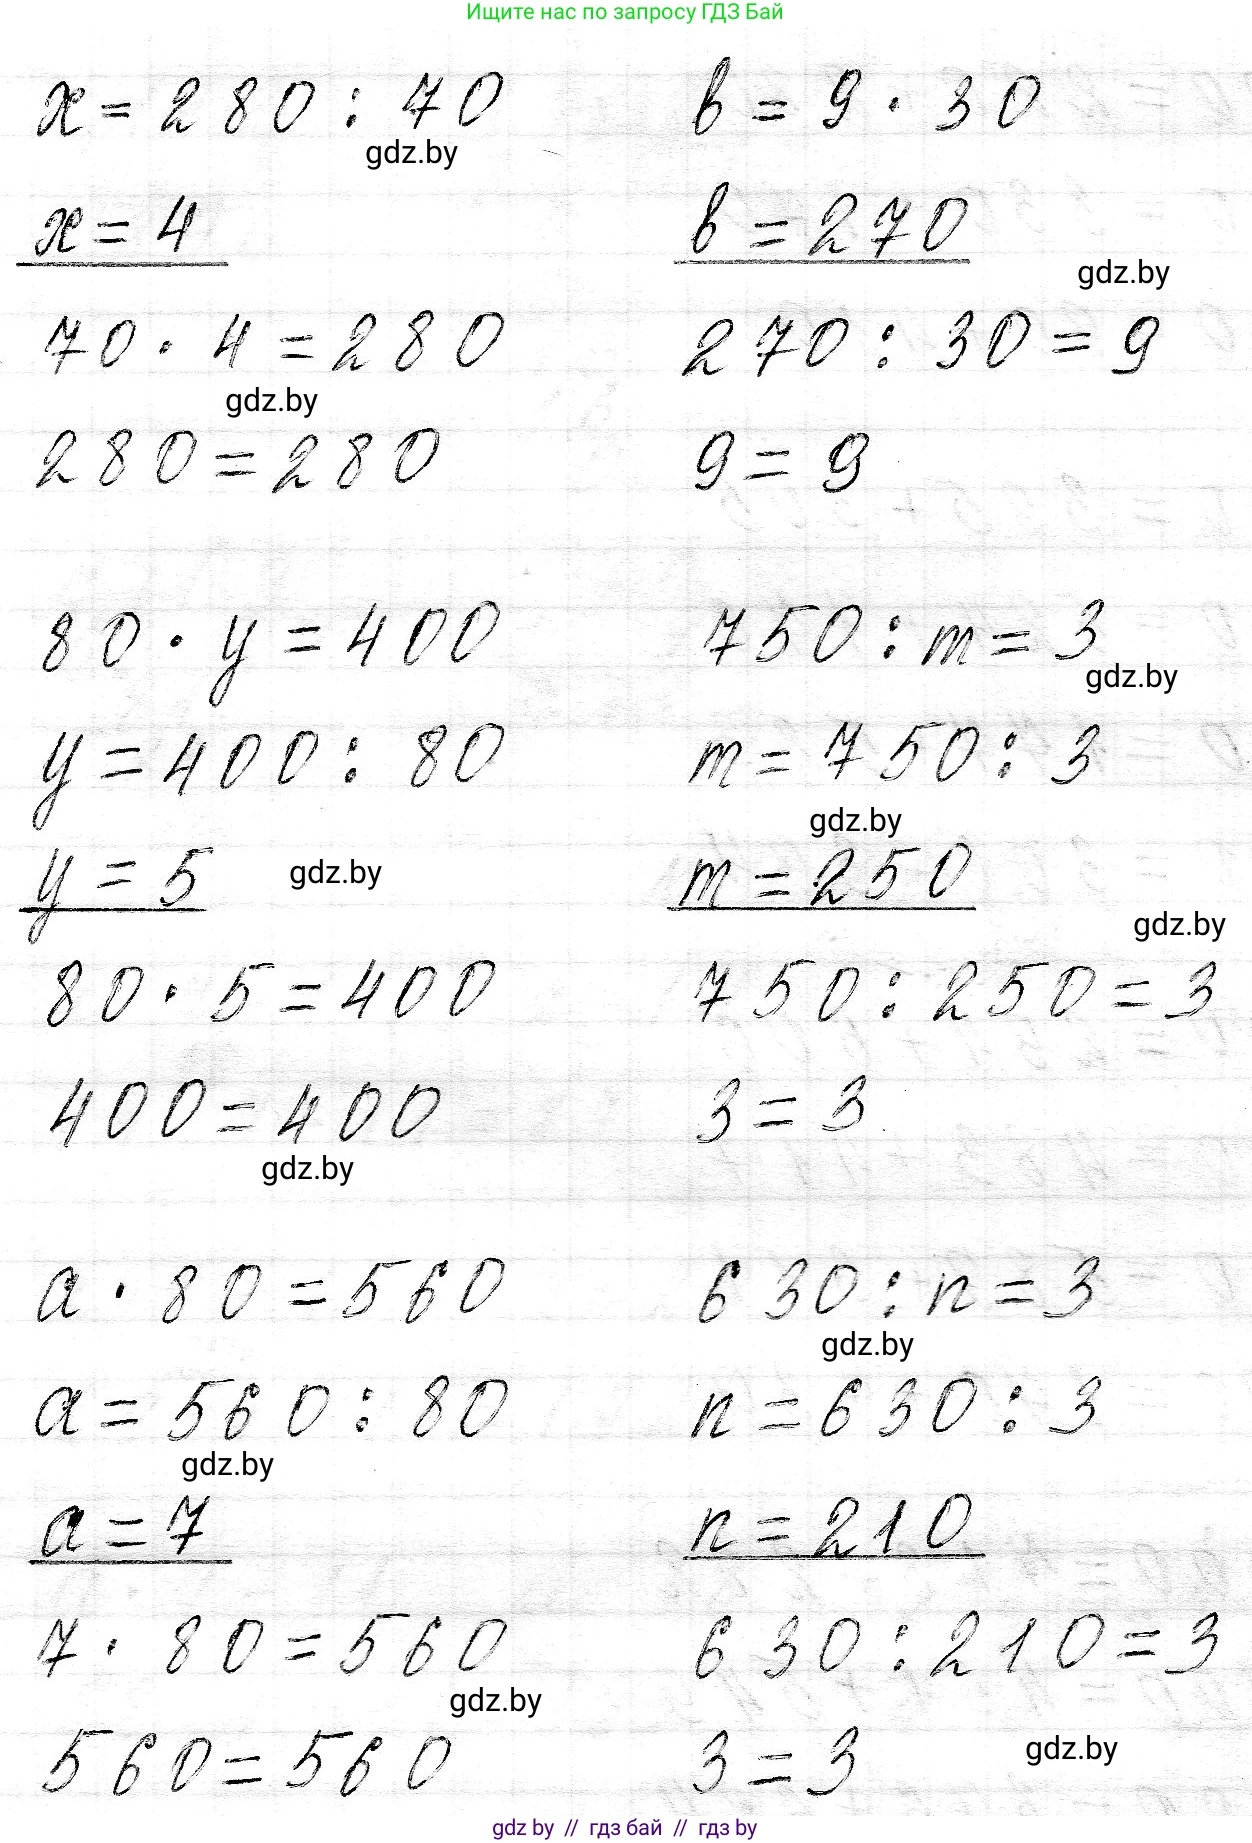 Ищите нас по запросу ГДЗ Бай
x = 280 : 70
gdz.by
x = 4
70 · 4 = 280
gdz.by
280 = 280
80 · y = 400
y = 400 : 80
y = 5
gdz.by
80 · 5 = 400
400 = 400
gdz.by
a · 80 = 560
a = 560 : 80
gdz.by
a = 7
7 · 80 = 560
gdz.by
560 = 560
в = 9 · 30
в = 270
gdz.by
270 : 30 = 9
9 = 9
750 : m = 3
gdz.by
m = 750 : 3
gdz.by
m = 250
gdz.by
750 : 250 = 3
3 = 3
630 : n = 3
gdz.by
n = 630 : 3
n = 210
630 : 210 = 3
3 = 3
gdz.by
gdz by // гдз бай // гдз by